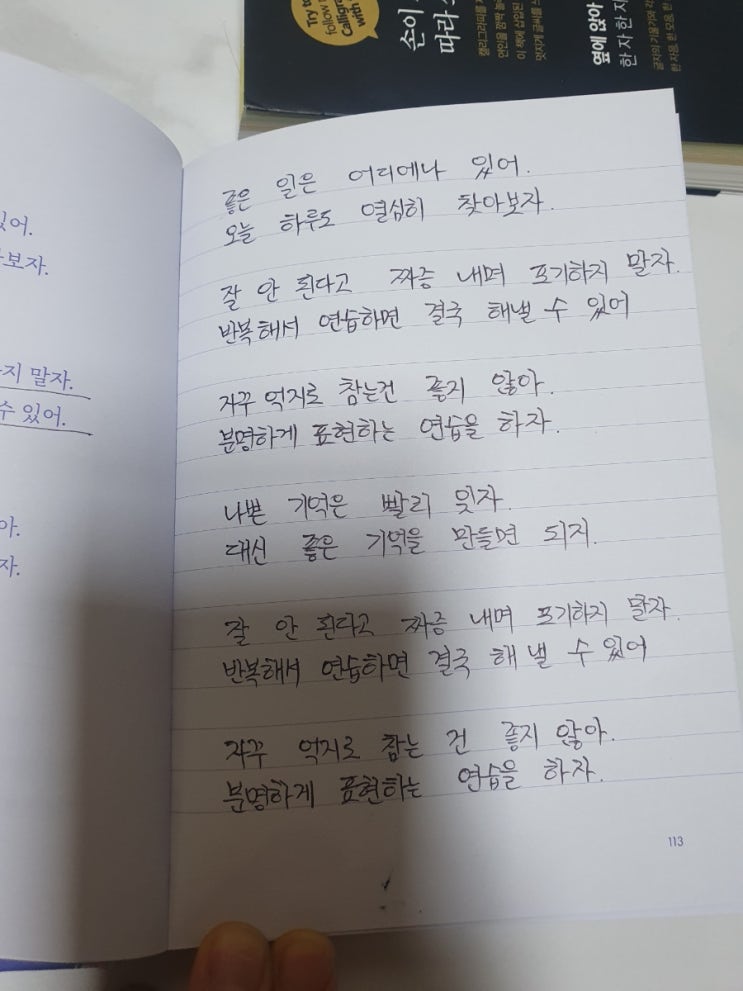 Try to
follow
Calligr
with
손이
따라
옆에 앉아
한 자 한 자
있어.
보자.
지 말자.
수 있어.
아.
자.
좋은 일은 어디에나 있어.
오늘 하루도 열심히 찾아보자.
잘 안 된다고 짜증 내며 포기하지 말자.
반복해서 연습하면 결국 해낼 수 있어
자꾸 억지로 참는건 좋지 않아.
분명하게 표현하는 연습을 하자.
나쁜 기억은 빨리 잊자.
대신 좋은 기억을 만들면 되지.
잘 안 된다고 짜증 내며 포기하지 말자.
반복해서 연습하면 결국 해낼 수 있어
자꾸 억지로 참는 건 좋지 않아.
분명하게 표현하는 연습을 하자.
113